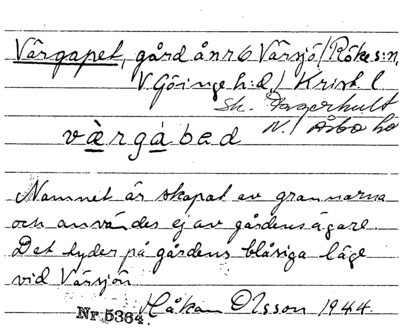 Värgapet, gård å nr 6 Värsjö/Röke s:n,
V. Göinge h:d/ Krist. l
Sk. Fagerhult
N. Åsbo hd
värgàbad
Namnet är skapat av grannarna
och användes ej av gårdens ägare.
Det tyder på gårdens blåsiga läge
vid Värsjön.
Håkan Olsson 1944.
Nr 5364.